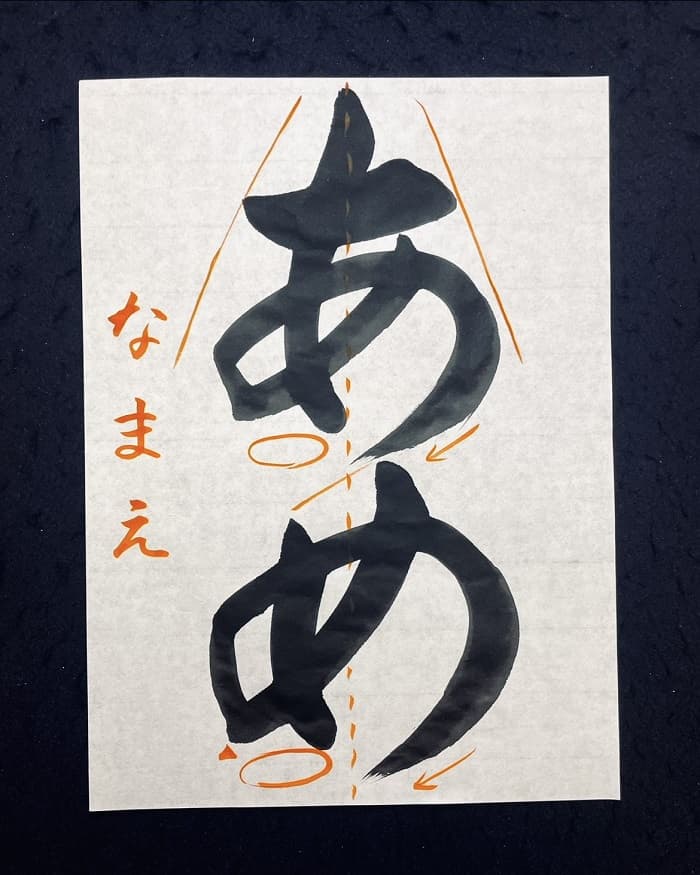 あめ
なまえ